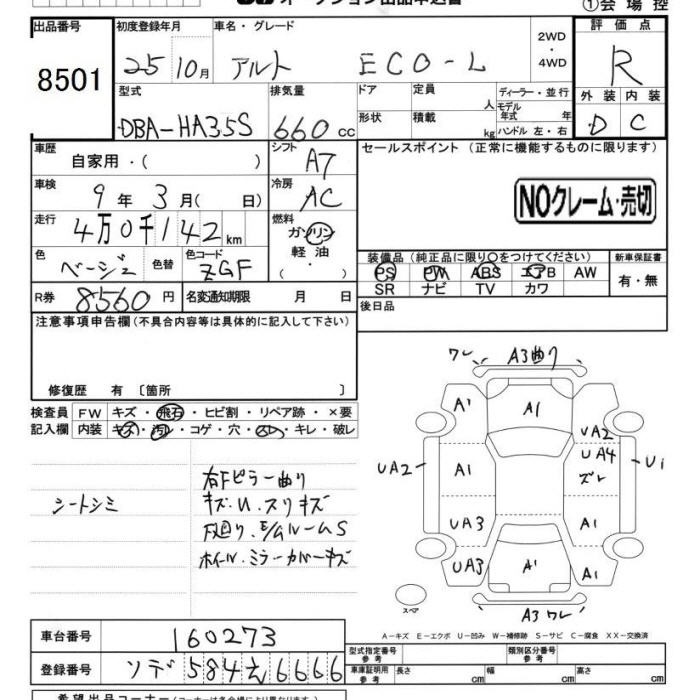 オークション出品申込書
①会場控
出品番号
8501
初度登録年月
25 10月
車名・グレード
アルト ECO-L
2WD
・
4WD
評価点
R
外装 内装
D C
型式
DBA-HA35S
排気量
660 cc
ドア
定員
人
形状
積載
kg
ディーラー・並行
モデル年式 年
ハンドル 左・右
車歴
自家用・( )
シフト
A7
セールスポイント (正常に機能するものに限ります)
NOクレーム・売切
車検
9年 3月( 日)
冷房
AC
走行
4万0千142km
燃料
ガソリン
軽油
・
色
ベージュ
色替
色コード
ZGF
装備品(純正品に限り○をつけてください)
PS PW ABS エアB AW
SR ナビ TV カワ
新車保証書
有・無
R券
8560円
名変通知期限 月 日
後日品
注意事項申告欄(不具合内容等は具体的に記入して下さい)
修復歴 有〔箇所 〕
検査員
記入欄
FW キズ・飛石・ヒビ割・リペア跡・×要
内装 キズ・汚レ・コゲ・穴・スレ・キレ・破レ
シートシミ
右Fピラー曲り
キズ.U.スリキズ
下廻り.E/GルームS
ホイール.ミラーカバーキズ
ワレ A3曲り
A1 A1
UA2
UA4
ズレ
UA2 A1 U1
UA3 A1
UA3 A1 A1
A3ワレ
スペア
A－キズ E－エクボ U－凹み W－補修跡 S－サビ C－腐食 XX－交換済
車台番号
160273
登録番号
ソデ584え6666
型式指定番号
参考
類別区分番号
参考
車庫証明用
参考
長さ cm 幅 cm 高さ cm
希望出品コーナー